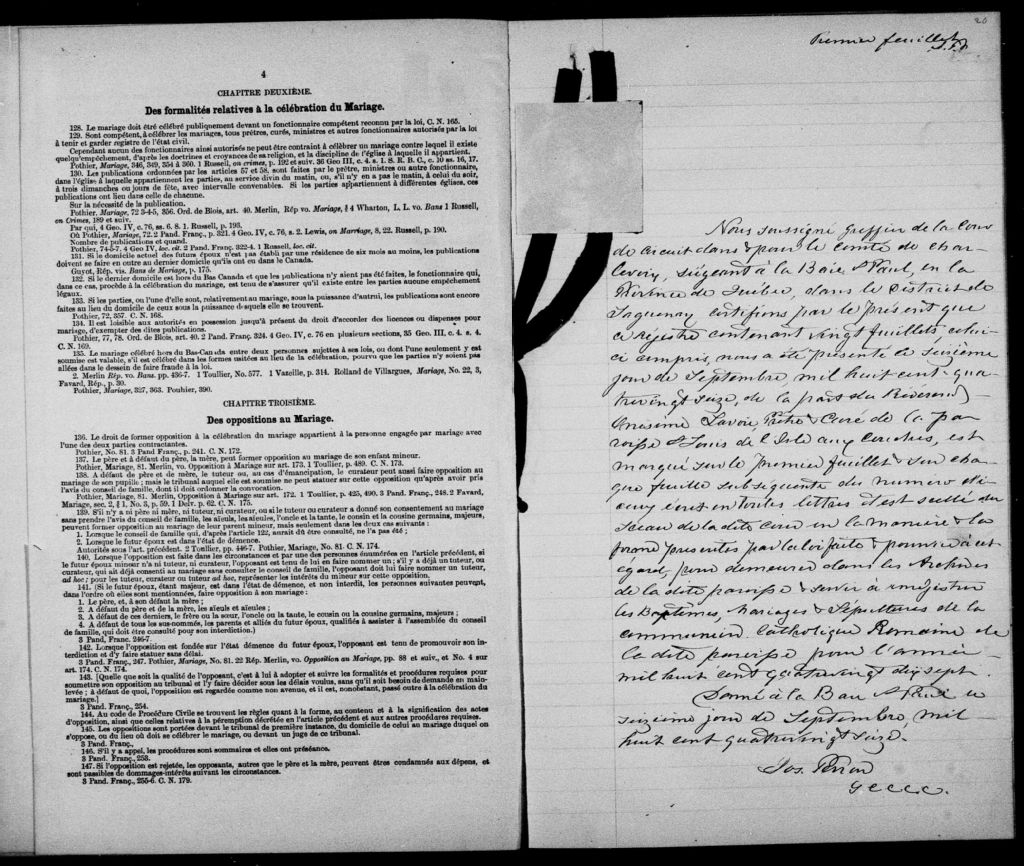 4
CHAPITRE DEUXIÈME.
Des formalités relatives à la célébration du Mariage.
128. Le mariage doit être célébré publiquement devant un fonctionnaire compétent reconnu par la loi, C. N. 165.
129. Sont compétent, à célébrer les mariages, tous prêtres, curés, ministres et autres fonctionnaires autorisés par la loi
à tenir et garder registre de l'état civil.
Cependant aucun des fonctionnaires ainsi autorisés ne peut être contraint à célébrer un mariage contre lequel il existe
quelqu'empêchement, d'après les doctrines et croyances de sa religion, et la discipline de l'église à laquelle il appartient.
Pothier, Mariage, 346, 349, 354 à 360. 1 Russell, on crimes, p. 192 et suiv. 36 Geo III, c. 4. s. 1. S. R. B. C., c. 10 ss. 16, 17.
130. Les publications ordonnées par les articles 57 et 58, sont faites par le prêtre, ministres ou autre fonctionnaire,
dans l'église à laquelle appartiennent les parties, au service divin du matin, ou, s'il n'y en a pas le matin, à celui du soir,
à trois dimanches ou jours de fête, avec intervalle convenables. Si les parties appartiennent à différentes églises, ces
publications ont lieu dans celle de chacune.
Sur la nécessité de la publication.
Pothier, Mariage, 72 3-4-5, 356. Ord. de Blois, art. 40. Merlin, Rép vo. Mariage, § 4 Wharton, L. L. vo. Bans 1 Russell,
on Crimes, 189 et suiv.
Par qui, 4 Geo. IV, c. 76, ss. 6. 8. 1. Russell, p. 193.
Où Pothier, Mariage, 72. 2 Pand. Franç., p. 321. 4 Geo. IV, c. 76, s. 2. Lewis, on Marriage, 8, 22. Russell, p. 190.
Nombre de publications et quand.
Pothier, 74-5-7. 4 Geo IV, loc. cit. 2 Pand. Franç. 322-4. 1 Russell, loc. cit.
131. Si le domicile actuel des futurs époux n'est pas établi par une résidence de six mois au moins, les publications
doivent se faire en outre au dernier domicile qu'ils ont eu dans le Canada.
Guyot, Rép. vis. Bans de Mariage, p. 175.
132. Si le dernier domicile est hors du Bas Canada et que les publications n'y aient pas été faites, le fonctionnaire qui,
dans ce cas, procède à la célébration du mariage, est tenu de s'assurer qu'il existe entre les parties aucune empêchement
légaux.
133. Si les parties, ou l'une d'elle sont, relativement au mariage, sous la puissance d'autrui, les publications sont encore
faites au lieu du domicile de ceux sous la puissance desquels elle se trouvent.
Pothier, 72, 357. C. N. 168.
134. Il est loisible aux autorités en possession jusqu'à présent du droit d'accorder des licences ou dispenses pour
mariage, d'exempter des dites publications.
Pothier, 77, 78. Ord. de Blois, art. 40. 2 Pand Franç. 324. 4 Geo. IV, c. 76 en plusieurs sections, 35 Geo. III, c. 4. s. 4.
C. N. 169.
135. Le mariage célébré hors du Bas-Canada entre deux personnes sujettes à ses lois, ou dont l'une seulement y est
soumise est valable, s'il est célébré dans les formes usitées au lieu de la célébration, pourvu que les parties n'y soient pas
allées dans le dessein de faire fraude à la loi.
2. Merlin Rép. vo. Bans. pp. 436-7. 1 Toullier, No. 577. 1 Vazeille, p. 314. Rolland de Villargues, Mariage, No. 22, 3,
Favard, Rép., p. 30.
Pothier, Mariage, 327, 363. Pouhier, 390.
CHAPITRE TROISIÈME.
Des oppositions au Mariage.
136. Le droit de former opposition à la célébration du mariage appartient à la personne engagée par mariage avec
l'une des deux parties contractantes.
Pothier, No. 81. 3 Pand Franç., p. 241. C. N. 172.
137. Le père et à défaut du père, la mère, peut former opposition au mariage de son enfant mineur.
Pothier, Mariage, 81. Merlin, vo. Opposition à Mariage sur art. 173. 1 Toullier, p. 489. C. N. 173.
138. A défaut de père et de mère, le tuteur ou, au cas d'émancipation, le curateur peut aussi faire opposition au
mariage de son pupille; mais le tribunal auquel elle est soumise ne peut statuer sur cette opposition qu'après avoir pris
l'avis du conseil de famille, dont il doit ordonner la convocation.
Pothier, Mariage, 81. Merlin, Opposition à Mariage sur art. 172. 1 Toullier, p. 425, 490. 3 Pand. Franç., 248. 2 Favard,
Mariage, sec. 2, § 1, No. 3, p. 59. 1 Delv. p. 62. C. N. 175.
139. S'il n'y a ni père ni mère, ni tuteur, ni curateur, ou si le tuteur ou curateur a donné son consentement au mariage
sans prendre l'avis du conseil de famille, les aïeuls, les aïeules, l'oncle et la tante, le cousin et la cousine germains, majeurs,
peuvent former opposition au mariage de leur parent mineur, mais seulement dans les deux cas suivants :
1. Lorsque le conseil de famille qui, d'après l'article 122, aurait dû être consulté, ne l'a pas été ;
2. Lorsque le futur époux est dans l'état de démence.
Autorités sous l'art. précédent. 2 Toullier, pp. 446-7. Pothier, Mariage, No. 81. C. N. 174.
140. Lorsque l'opposition est faite dans les circonstances et par une des personnes énumérées en l'article précédent, si
le futur époux mineur n'a ni tuteur, ni curateur, l'opposant est tenu de lui en faire nommer un; s'il y a déjà un tuteur, ou
curateur, qui ait déjà consenti au mariage sans consulter le conseil de famille, l'opposant doit lui faire nommer un tuteur,
ad hoc; pour les tuteur, curateur ou tuteur ad hoc, représenter les intérêts du mineur sur cette opposition.
141. (Si le futur époux, étant majeur, est dans l'état de démence, et non interdit, les personnes suivantes peuvent,
dans l'ordre où elles sont mentionnées, faire opposition à son mariage :
1. Le père, et, à son défaut la mère ;
2. A défaut du père et de la mère, les aïeuls et aïeules ;
3. A défaut de ces derniers, le frère ou la sœur, l'oncle ou la tante, le cousin ou la cousine germains, majeurs ;
4. A défaut de tous les sus-nommés, les parents et alliés du futur époux, qualifiés à assister à l'assemblée du conseil
de famille, qui doit être consulté pour son interdiction.)
3 Pand, Franç. 246-7.
142. Lorsque l'opposition est fondée sur l'état démence du futur époux, l'opposant est tenu de promouvoir son in-
terdiction et d'y faire statuer sans délai.
3 Pand. Franç., 247. Pothier, Mariage, No. 81. 22 Rép. Merlin, vo. Opposition au Mariage, pp. 88 et suiv., et No. 4 sur
art. 174. C. N. 174.
143. [Quelle que soit la qualité de l'opposant, c'est à lui à adopter et suivre les formalités et procédures requises pour
soumettre son opposition au tribunal et l'y faire décider sous les délais voulus, sans qu'il soit besoin de demande en main-
levée ; à défaut de quoi, l'opposition est regardée comme non avenue, et il est, nonobstant, passé outre à la célébration du
mariage.]
3 Pand. Franç., 254.
144. Au code de Procédure Civile se trouvent les règles quant à la forme, au contenu et à la signification des actes
d'opposition, ainsi que celles relatives à la péremption décrétée en l'article précédent et aux autres procédures requises.
145. Les oppositions sont portées devant le tribunal de première instance, du domicile de celui au mariage duquel on
s'oppose, ou du lieu où doit se célébrer le mariage, ou devant un juge de ce tribunal.
3 Pand. Franç.,
146. S'il y a appel, les procédures sont sommaires et elles ont préséance.
3 Pand. Franç., 253.
147. Si l'opposition est rejetée, les opposants, autres que le père et la mère, peuvent être condamnés aux dépens, et
sont passibles de dommages-intérêts suivant les circonstances.
3 Pand. Franç., 255-6. C. N. 179.
20
Premier feuillet
J. P.
Nous soussigné greffier de la Cour
de Circuit dans & pour le comté de Char-
levoix, siégeant à la Baie St Paul, en la
Province de Québec, dans le District de
Saguenay certifions par le présent que
ce régistre contenant vingt feuillets celui-
ci compris, nous a été présenté le Seizième
jour de Septembre mil huit cent qua-
tre vingt seize, de la part du Révérend
Onésime Lavoie Prêtre & Curé de la pa-
roisse St Louis de l'Isle aux Coudres, est
marqué sur le premier feuillet & sur cha-
que feuille subséquente du numero d'i-
ceux écrit en toutes lettres & est scellé du
Sceau de la dite cour en la manière & la
forme prescrites par la loi faite & pourvue à cet
egard, pour demeurer dans les Archives
de la dite paroisse & servir à enrégistrer
les Baptêmes, Mariages & Sépultures de la
communion Catholique Romaine de
la dite paroisse pour l'année
mil huit cent quatre vingt dix sept.
Donné à la Baie St Paul ce
seizième jour de Septembre, mil
huit cent quatre vingt seize.
Jos. Perron
G C C C C.